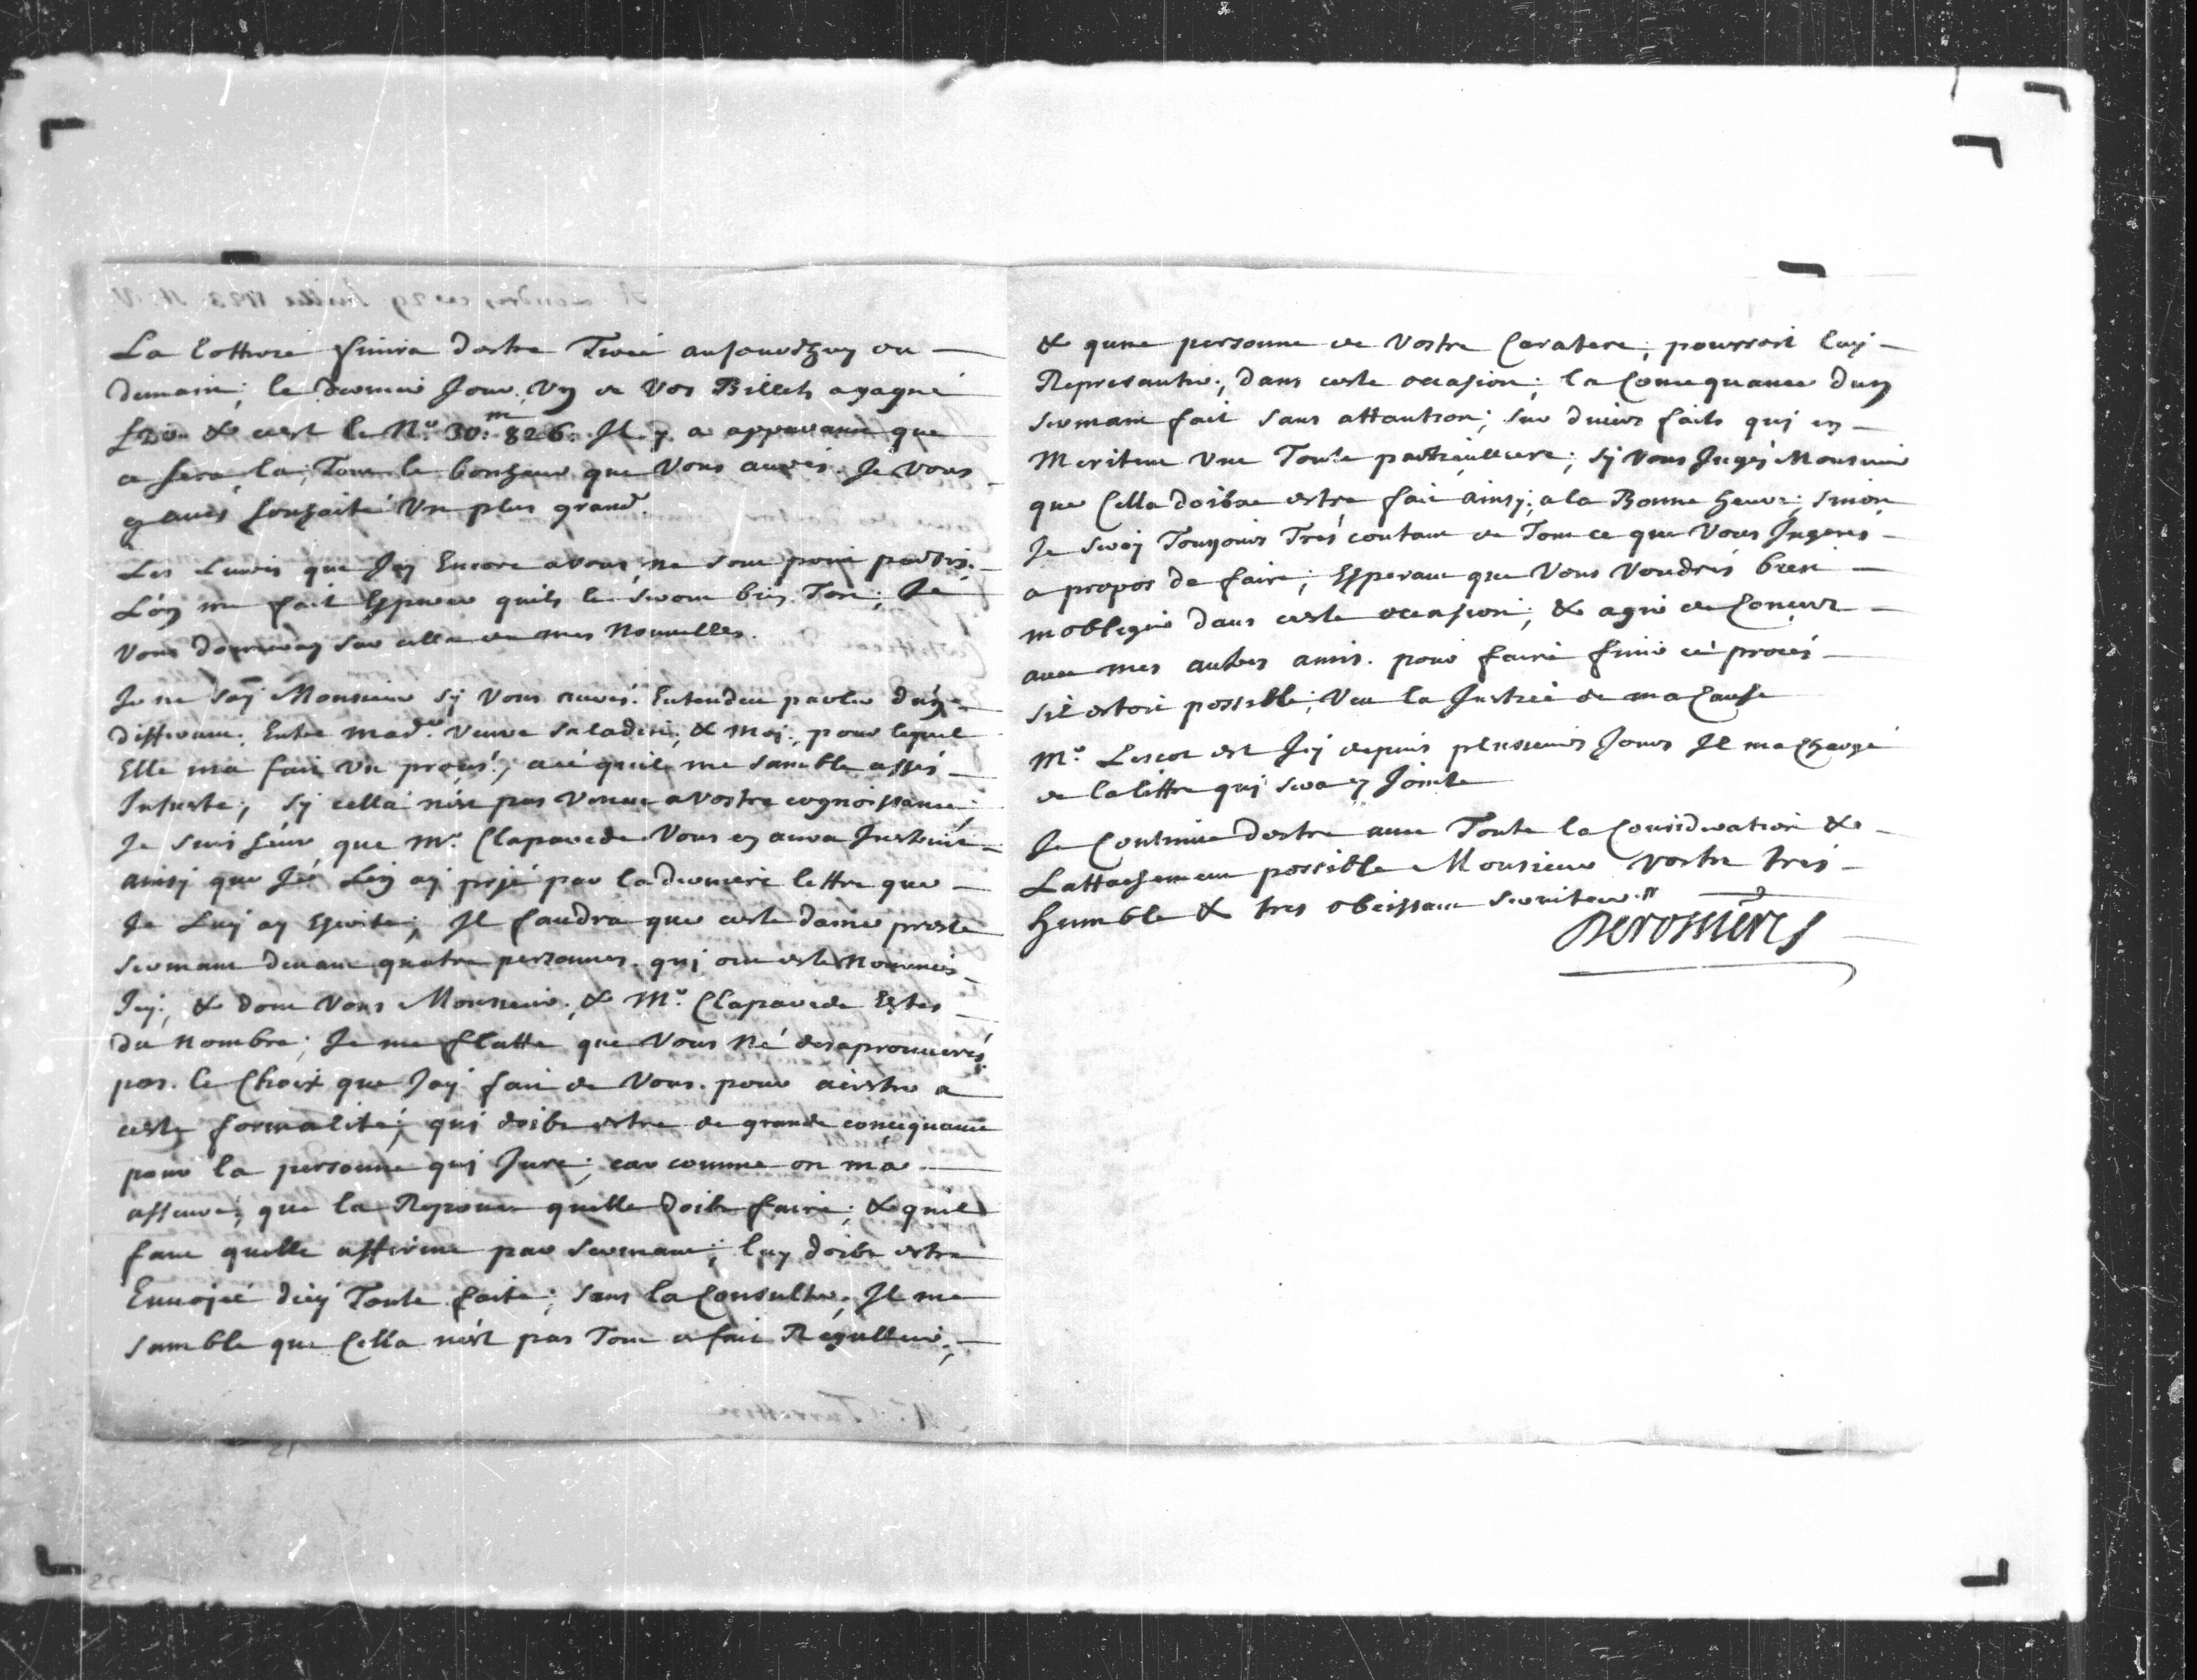 La Lotterie finira destre Tirée aujourdhuy ou
demain; le dernier Jour Un de Vos Billets agagné
£20 & cest le N.º 30:ᵐ 826. Il y a apparance que
ce sera la; Tout le bonheur que Vous aurés. Je Vous
y aués souhaité Un plus grand.
Les Liures que Jay Encore avous, ne sont point partis.
L'on me fait Esperer quils le seront bien Tost; Je
Vous donneray sur cella de mes Nouuelles.
Je ne say Monsieur sy Vous auués Entendeu parler d'un
differant Entre Mad.ᵉ Veuve Saladin, & Moi, pour lequel
Elle ma fait Un procés, a cé quil me samble assés
Injuste; sy cella n'est pas Venue a Vostre cognoissance
Je suis seur que Mʳ. Claparede Vous en aura Instruit
ainsy que Je Luy ay prié par la derniere lettre que
Je Luy ay Escrite; Il faudra que ceste dame preste
sermant deuant quatre personnes qui ont esté Nommées
Icy, & dont Vous Monsieur, & Mʳ. Claparede Estes
du Nombre; Je me flatte que Vous Né desaprouuerés
pas le Choix que Jay fait de Vous pour acistre a
ceste formalité; qui doibt estre de grande concequance
pour la personne qui Jure; car comme on ma
assuré, que la Reponce quelle doibt faire; & quil
faut quelle affirme par sermant; luy doibt estre
Enuojée dicy Toute faite; sans la Consulter; Il me
samble que Cella n'est pas Tout a fait Regullier;
& qune personne de Vostre Caratere; pourroit luy
Represanter, dans ceste occasion; la Concequance dun
sermant fait sans attantion; sur diuers faits quj en
Meritent Une Toute particulliere; sy Vous Jugés Monsieur
que Cella doibue estre fait ainsy; a la Bonne heure; sinon
Je seray Toujours Trés contant de Tout ce que Vous Jugerés
a propos de faire; Esperant que Vous Voudrés bien
mobliger dans ceste occasion; & agir de Concert
auec mes autres amis. pour faire finir cé procés
sil estoit possible; Veu la Justice de ma Cause
Mʳ. Lescot est Icy depuis plusieurs Jours Il ma Chargé
de la lettre quj sera cy Jointe
Je Continue destre auec Toute la Consideration &
Lattachement possible Monsieur Vostre trés
humble & tres obeissant seruiteur